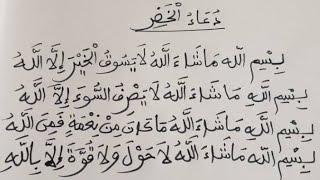 دُعَاءُ الْخَضِرِ
بِسْمِ اللّٰهِ مَا شَاءَ اللّٰهُ لَا يَسُوقُ الْخَيْرَ إِلَّا اللّٰهُ
بِسْمِ اللّٰهِ مَا شَاءَ اللّٰهُ لَا يَصْرِفُ السُّوءَ إِلَّا اللّٰهُ
بِسْمِ اللّٰهِ مَا شَاءَ اللّٰهُ مَا كَانَ مِنْ نِعْمَةٍ فَمِنَ اللّٰهِ
بِسْمِ اللّٰهِ مَا شَاءَ اللّٰهُ لَا حَوْلَ وَلَا قُوَّةَ إِلَّا بِاللّٰهِ